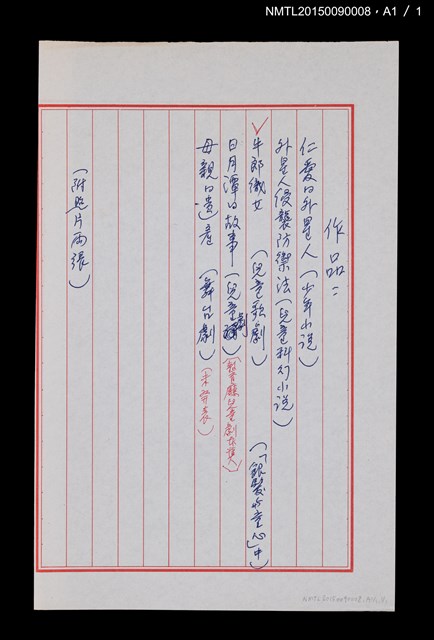 NMTL20150090008，A1 / 1
作品：
仁愛的外星人（少年小說）
外星人侵襲防禦法（兒童科幻小說）
✓牛郎織女（兒童歌劇）（「銀髮的童心」中）
日月潭的故事（兒童劇）（教育廳兒童劇本獎）
母親的遺產（舞台劇）（未發表）
（附照片兩張）